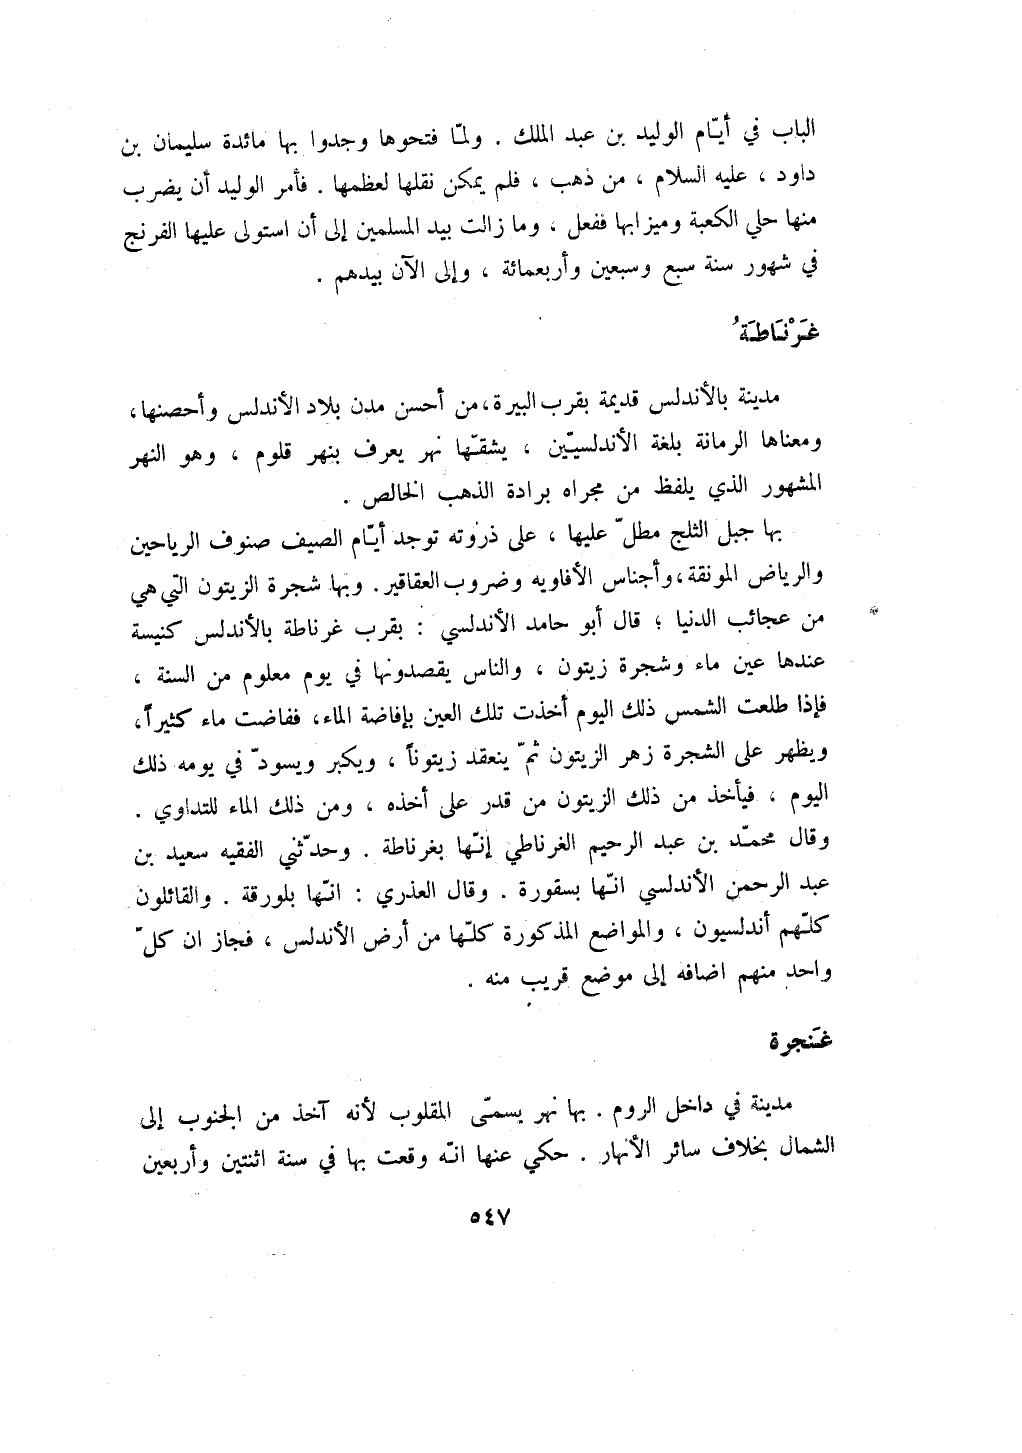 الباب في أيّام الوليد بن عبد الملك . ولمّا فتحوها وجدوا بها مائدة سليمان بن
داود ، عليه السلام ، من ذهب ، فلم يمكن نقلها لعظمها . فأمر الوليد أن يضرب
منها حلي الكعبة وميزابها ففعل ، وما زالت بيد المسلمين إلى أن استولى عليها الفرنج
في شهور سنة سبع وسبعين وأربعمائة ، وإلى الآن بيدهم .
غَرْنَاطَةُ
مدينة بالأندلس قديمة بقرب البيرة،من أحسن مدن بلاد الأندلس وأحصنها،
ومعناها الرمانة بلغة الأندلسيّين ، يشقّها نهر يعرف بنهر قلوم ، وهو النهر
المشهور الذي يلفظ من مجراه برادة الذهب الخالص .
بها جبل الثلج مطلّ عليها ، على ذروته توجد أيّام الصيف صنوف الرياحين
والرياض المونقة،وأجناس الأفاويه وضروب العقاقير . وبها شجرة الزيتون التي هي
من عجائب الدنيا ؛ قال أبو حامد الأندلسي : بقرب غرناطة بالأندلس كنيسة
عندها عين ماء وشجرة زيتون ، والناس يقصدونها في يوم معلوم من السنة ،
فإذا طلعت الشمس ذلك اليوم أخذت تلك العين بإفاضة الماء، ففاضت ماء كثيراً،
ويظهر على الشجرة زهر الزيتون ثمّ ينعقد زيتوناً ، ويكبر ويسودّ في يومه ذلك
اليوم ، فيأخذ من ذلك الزيتون من قدر على أخذه ، ومن ذلك الماء للتداوي .
وقال محمّد بن عبد الرحيم الغرناطي إنّها بغرناطة . وحدّثني الفقيه سعيد بن
عبد الرحمن الأندلسي انّها بسقورة . وقال العذري : انّها بلورقة . والقائلون
كلّهم أندلسيون ، والمواضع المذكورة كلّها من أرض الأندلس ، فجاز ان كلّ
واحد منهم اضافه إلى موضع قريب منه .
غَنجرة
مدينة في داخل الروم . بها نهر يسمّى المقلوب لأنه آخذ من الجنوب إلى
الشمال بخلاف سائر الأنهار . حكي عنها انّه وقعت بها في سنة اثنتين وأربعين
٥٤٧